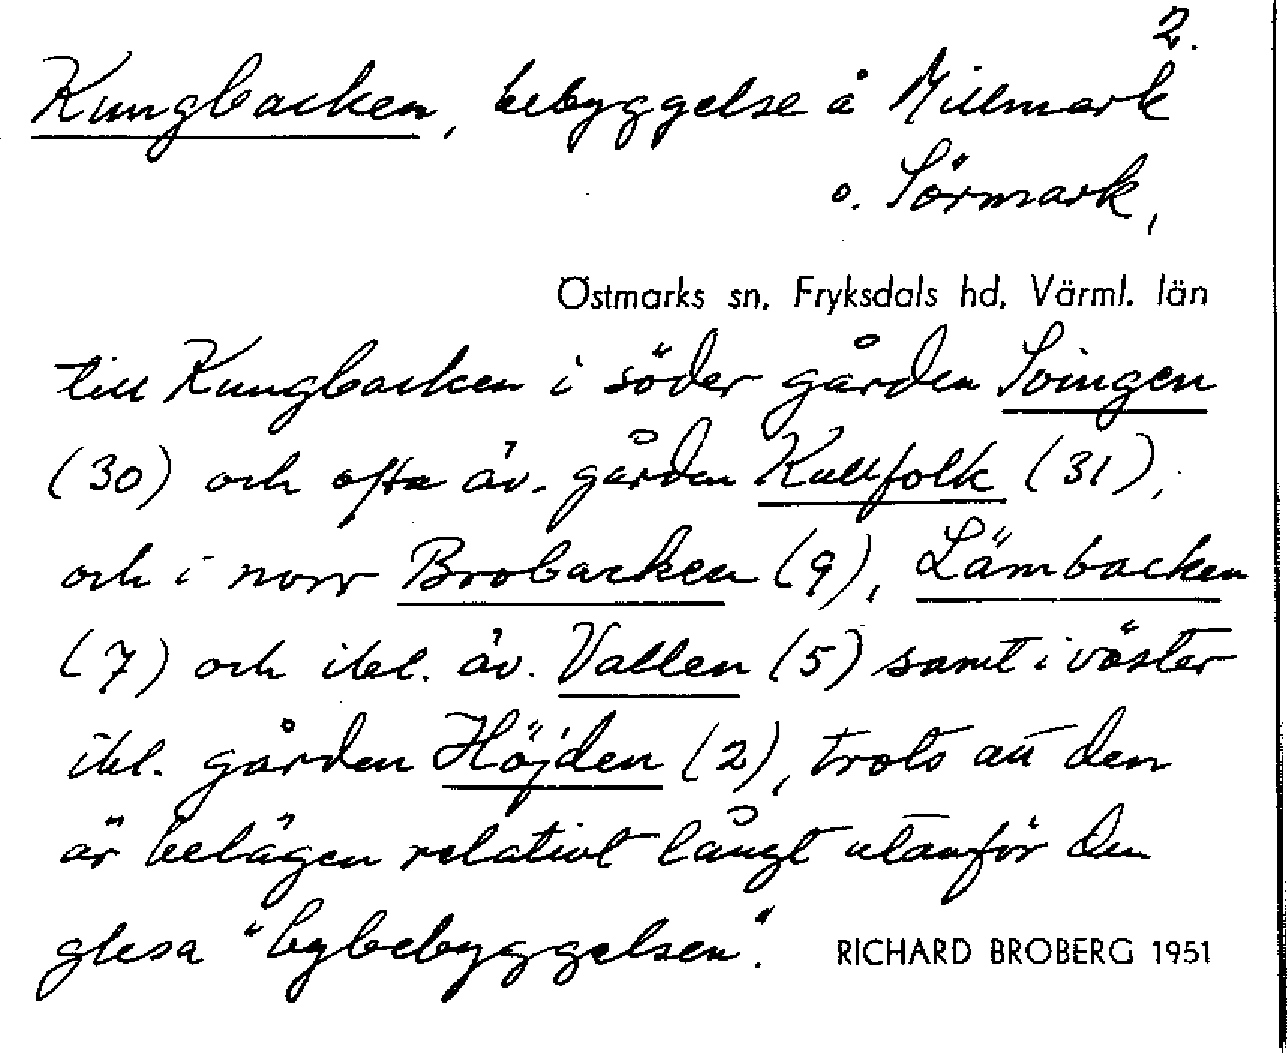 2.
Kungbacken, bebyggelse å Millmark
o. Sörmark,
Östmarks sn, Fryksdals hd, Värml. län
till Kungbacken i söder gården Svingen
(30) och ofta äv. gården Kallfolk (31),
och i norr Brobacken (9), Lämbacken
(7) och ibl. äv. Vallen (5) samt i väster
ibl. gården Höjden (2), trots att den
är belägen relativt långt utanför den
glesa "bybebyggelsen".
RICHARD BROBERG 1951